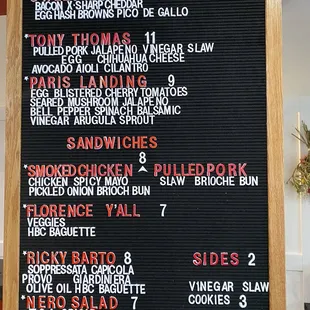 BACON X-SHARP CHEDDAR
EGG HASH BROWNS PICO DE GALLO
*TONY THOMAS 11
PULLED PORK JALAPENO VINEGAR SLAW
EGG CHIHUAHUA CHEESE
AVOCADO AIOLI CILANTRO
*PARIS LANDING 9
EGG BLISTERED CHERRY TOMATOES
SEARED MUSHROOM JALAPENO
BELL PEPPER SPINACH BALSAMIC
VINEGAR ARUGULA SPROUT
SANDWICHES
8
*SMOKED CHICKEN PULLED PORK
CHICKEN SPICY MAYO SLAW BRIOCHE BUN
PICKLED ONION BRIOCH BUN
*FLORENCE Y'ALL 7
VEGGIES
HBC BAGUETTE
*RICKY BARTO 8 SIDES 2
SOPPRESSATA CAPICOLA
PROVO GIARDINIERA
OLIVE OIL HBC BAGUETTE VINEGAR SLAW
*NERO SALAD 7 COOKIES 3